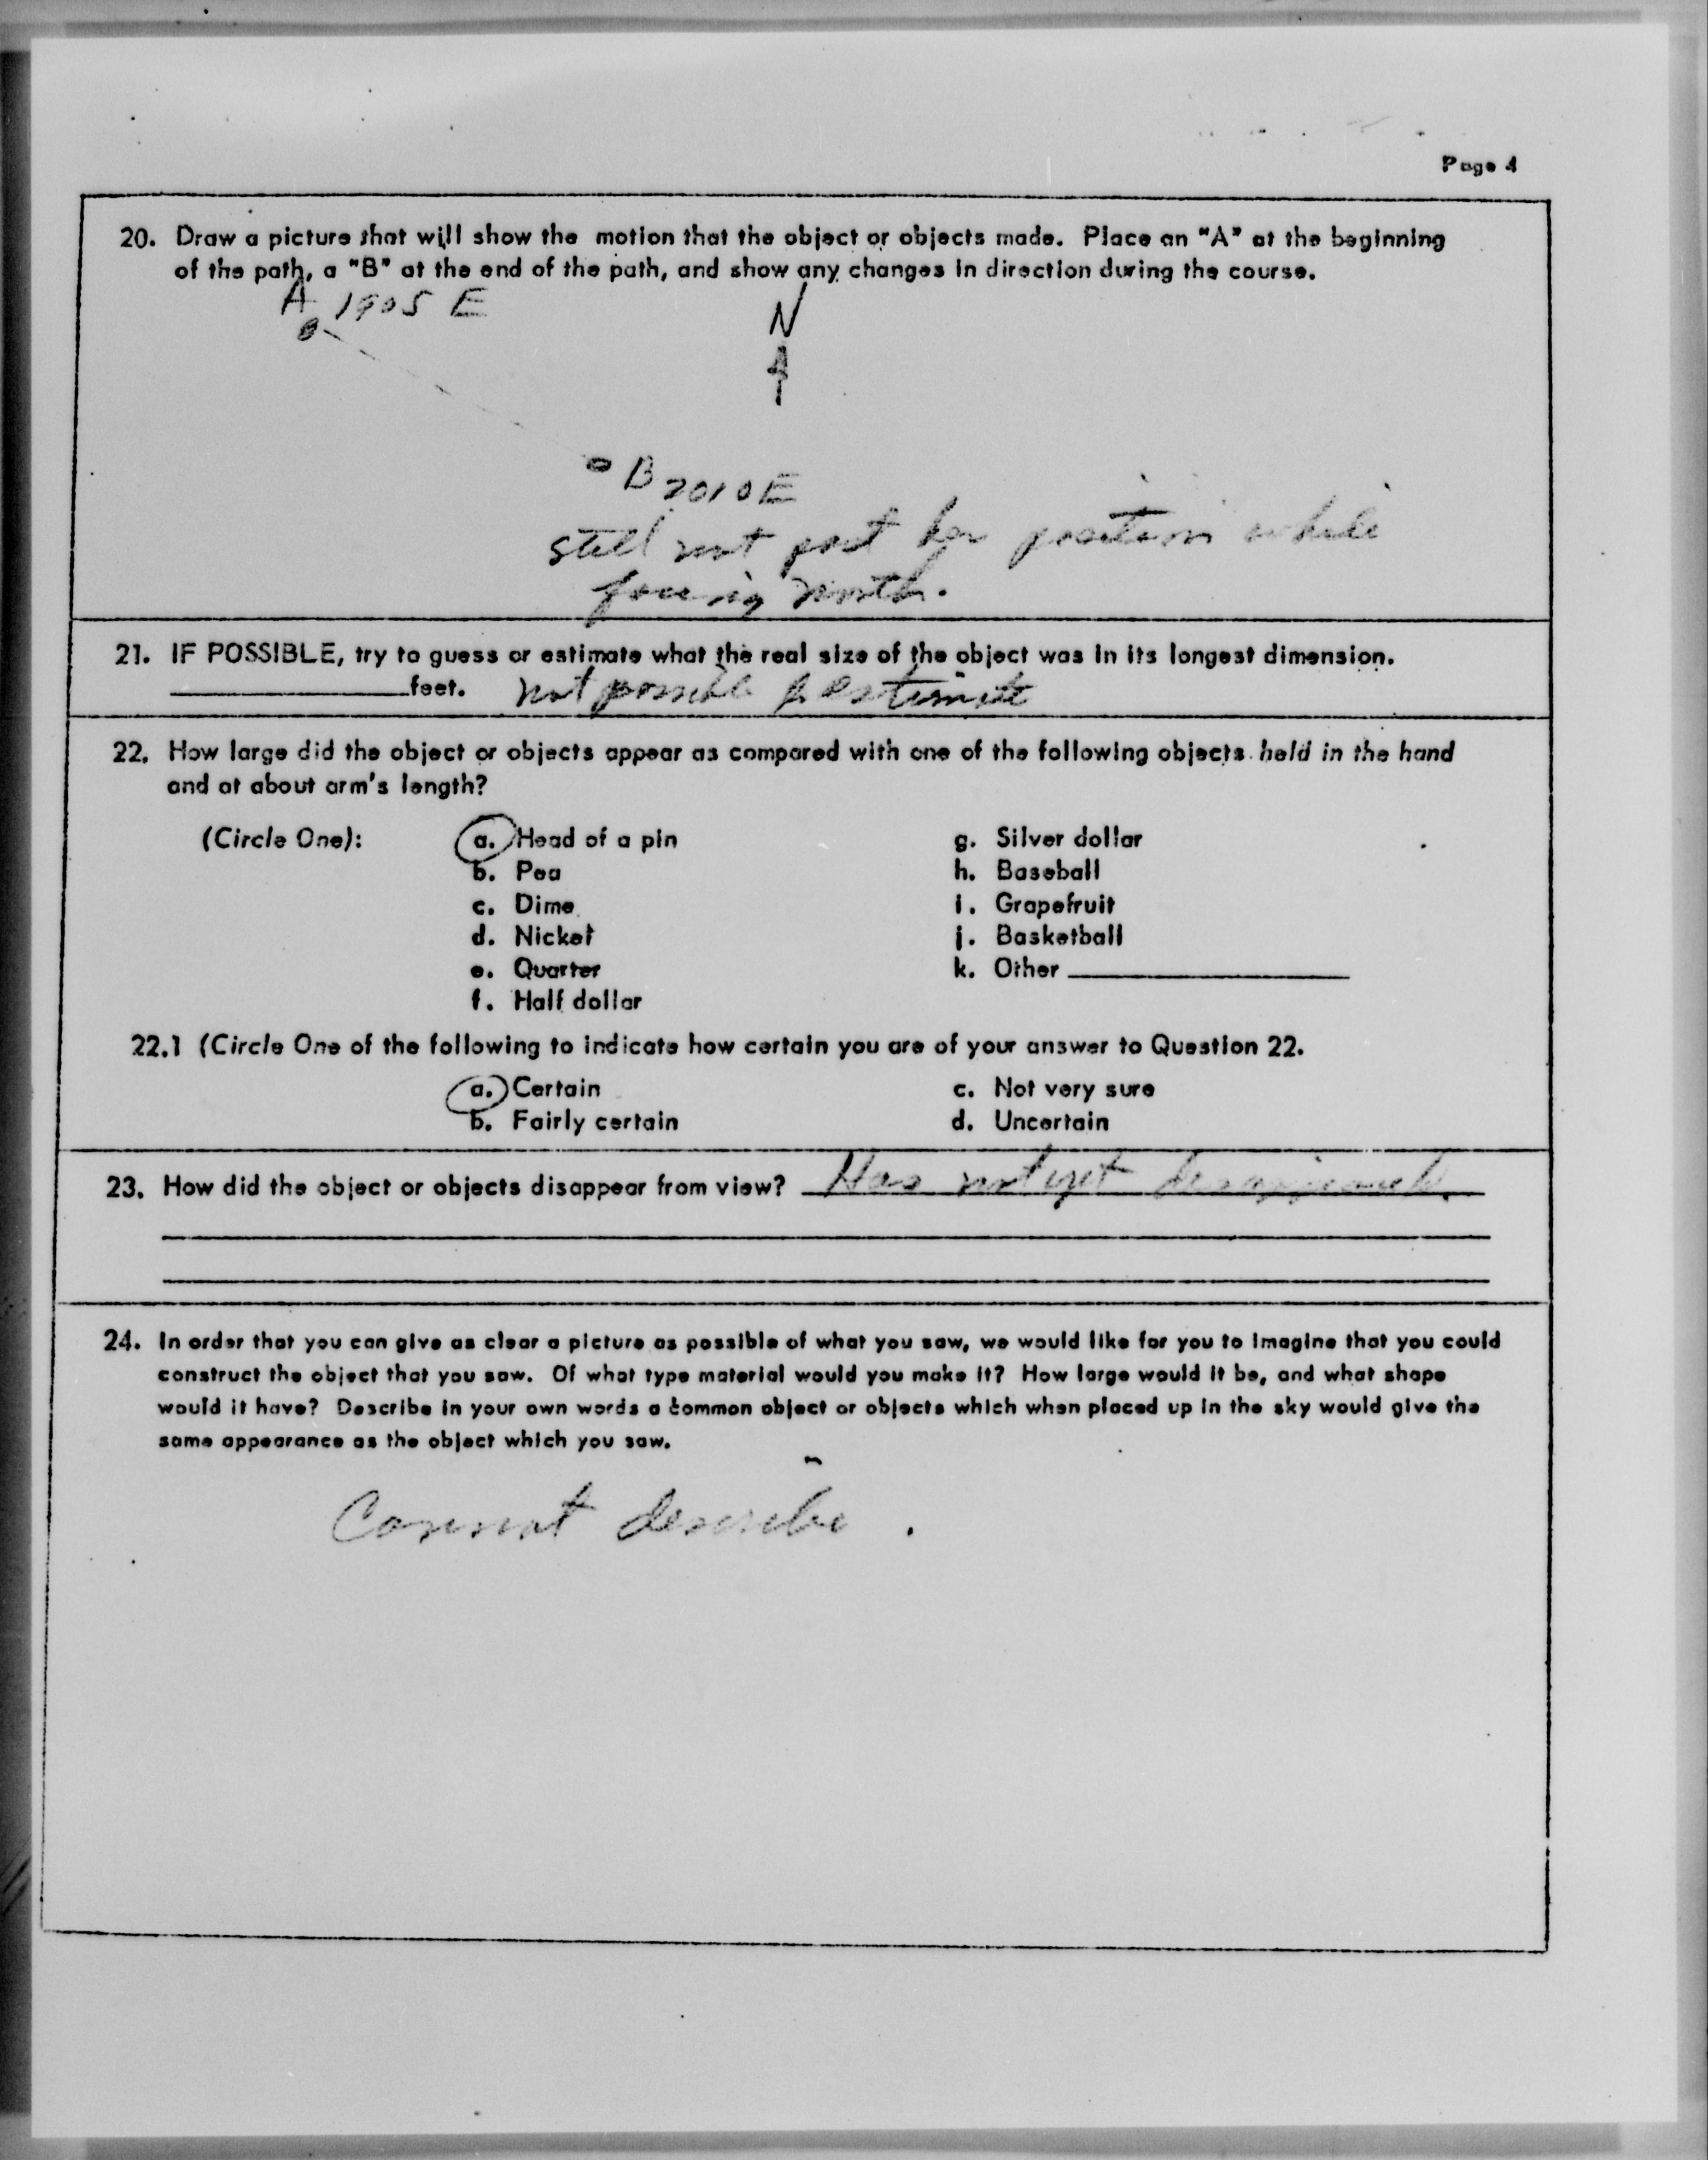 Page 4
20. Draw a picture that will show the motion that the object or objects made. Place an "A" at the beginning
of the path, a "B" at the end of the path, and show any changes in direction during the course.
A 1905 E
N
B 2010 E
still not past her position while
facing north.
21. IF POSSIBLE, try to guess or estimate what the real size of the object was in its longest dimension.
____________feet. not possible to estimate
22. How large did the object or objects appear as compared with one of the following objects held in the hand
and at about arm's length?
(Circle One): a. Head of a pin g. Silver dollar
b. Pea h. Baseball
c. Dime i. Grapefruit
d. Nickel j. Basketball
e. Quarter k. Other ____________
f. Half dollar
22.1 (Circle One of the following to indicate how certain you are of your answer to Question 22.
a. Certain c. Not very sure
b. Fairly certain d. Uncertain
23. How did the object or objects disappear from view? Has not yet disappeared.
24. In order that you can give as clear a picture as possible of what you saw, we would like for you to imagine that you could
construct the object that you saw. Of what type material would you make it? How large would it be, and what shape
would it have? Describe in your own words a common object or objects which when placed up in the sky would give the
same appearance as the object which you saw.
Cannot describe.